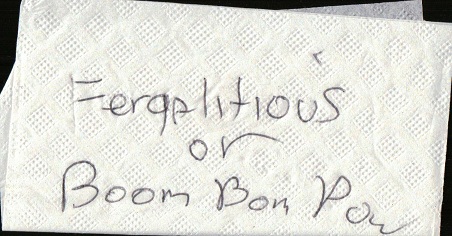 Fergalitious
or
Boom Bom Pow